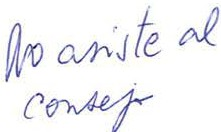 No asiste al
consejo